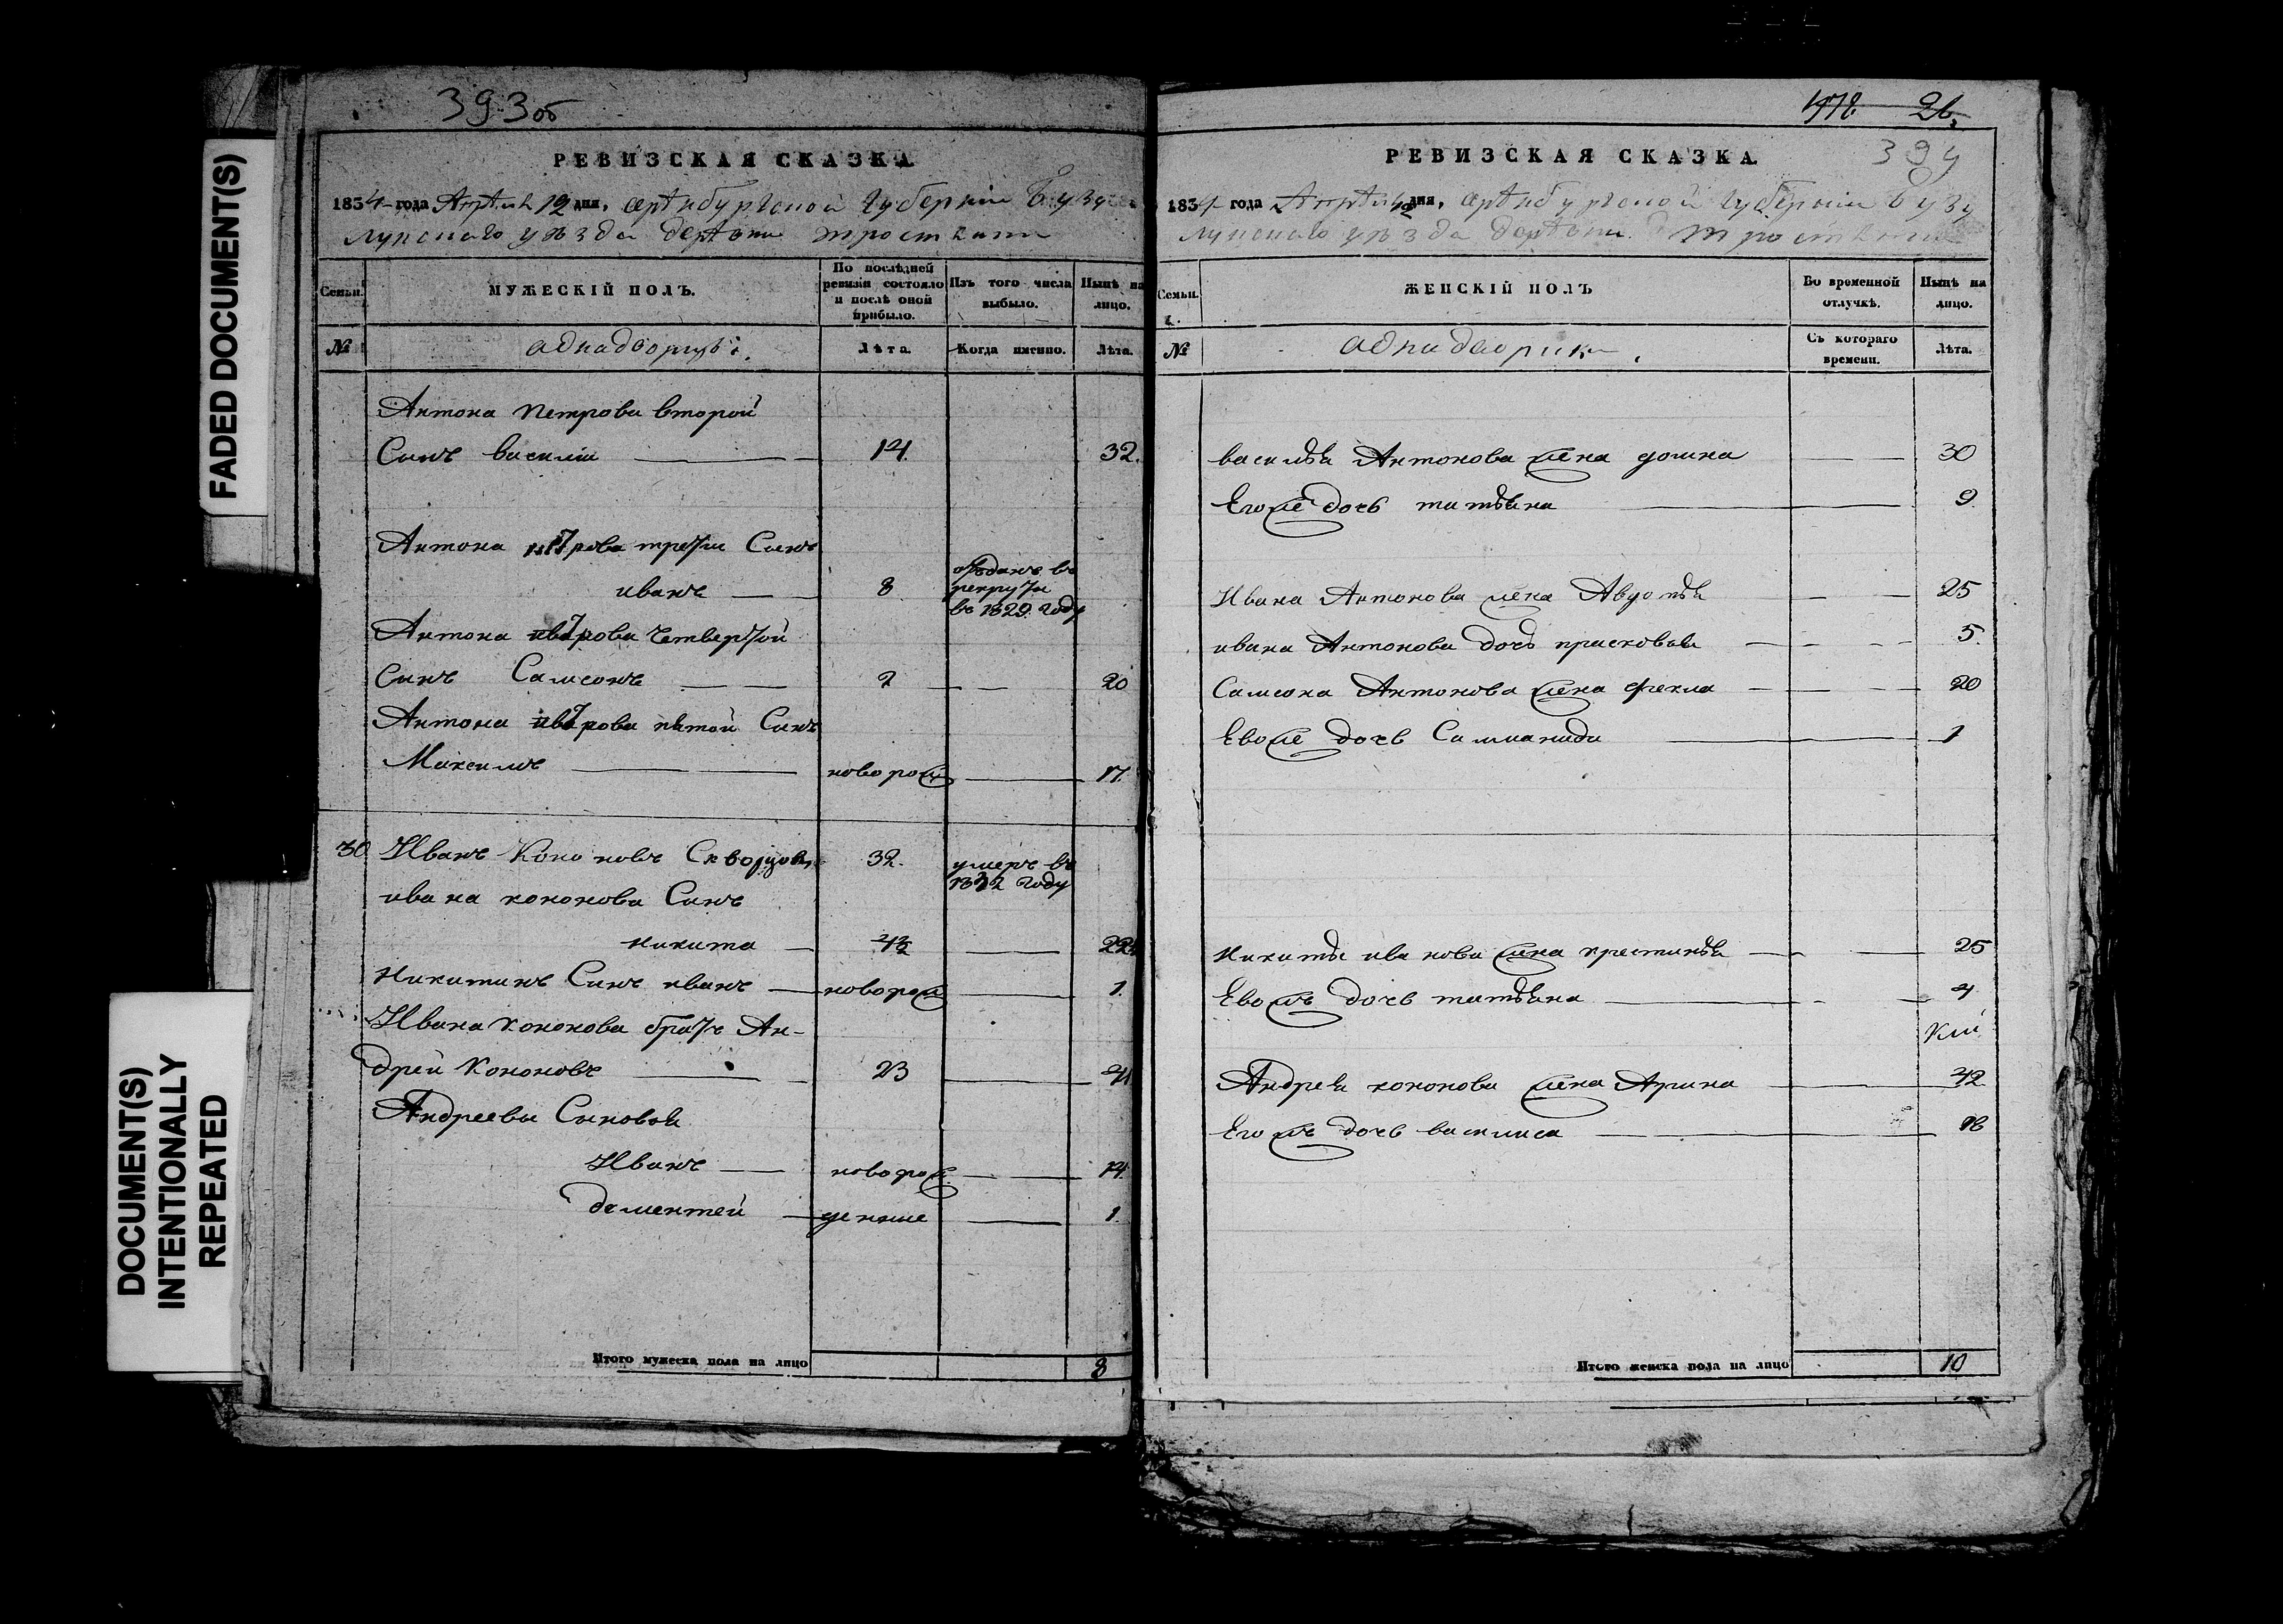 FADED DOCUMENT(S)
DOCUMENT(S)
INTENTIONALLY
REPEATED
393об
РЕВИЗСКАЯ СКАЗКА
1834 года Апреля 12 дня, оренбургской губернии бузу
лукскаго уѣзда деревни тростянки
Семьи.
МУЖЕСКІЙ ПОЛЪ.
По послѣдней
ревизіи состояло
и послѣ оной
прибыло.
Изъ того числа
выбыло.
Нынѣ на
лицо.
№
аднадворцы
Лѣта.
Когда именно.
Лѣта.
Антона петрова второй
Сынъ василій 14 32.
Антона петрова третій Сынъ
иванъ 8 отданъ въ
рекруты
въ 1829 году
Антона петрова четвертой
Сынъ Самсонъ 2 20
Антона петрова пятой Сынъ
Максимъ новорож 17.
30 Иванъ Кононовъ Скворцовъ 32. умеръ въ
1832 году
ивана кононова Сынъ
никита 22
Никитинъ Сынъ иванъ новорож 1.
Ивана кононова братъ Ан-
дрей Кононовъ 23 41
Андреевы Сыновья
Иванъ новорож 14.
дементей денные 1.
Итого мужеска пола на лицо 8
26.
394
РЕВИЗСКАЯ СКАЗКА.
1834 года Апреля 12 дня, оренбургской губернии бузу
лукскаго уѣзда деревни тростянки
Семьи.
ЖЕНСКІЙ ПОЛЪ
Во временной
отлучкѣ.
Нынѣ на
лицо.
№
аднадворки
Съ котораго
времени.
Лѣта.
василья Антонова жена домна 30
Егоже дочь татьяна 9
Ивана Антонова жена Авдотья 25
ивана Антонова дочь прасковья 5.
Самсона Антонова жена фекла 20
Евоже дочь 1
никиты иванова жена крестинья 25
Евожъ дочь татьяна 4
Андрея кононова жена Арина 42
Егожъ дочь василиса 16
Итого женска пола на лицо 10